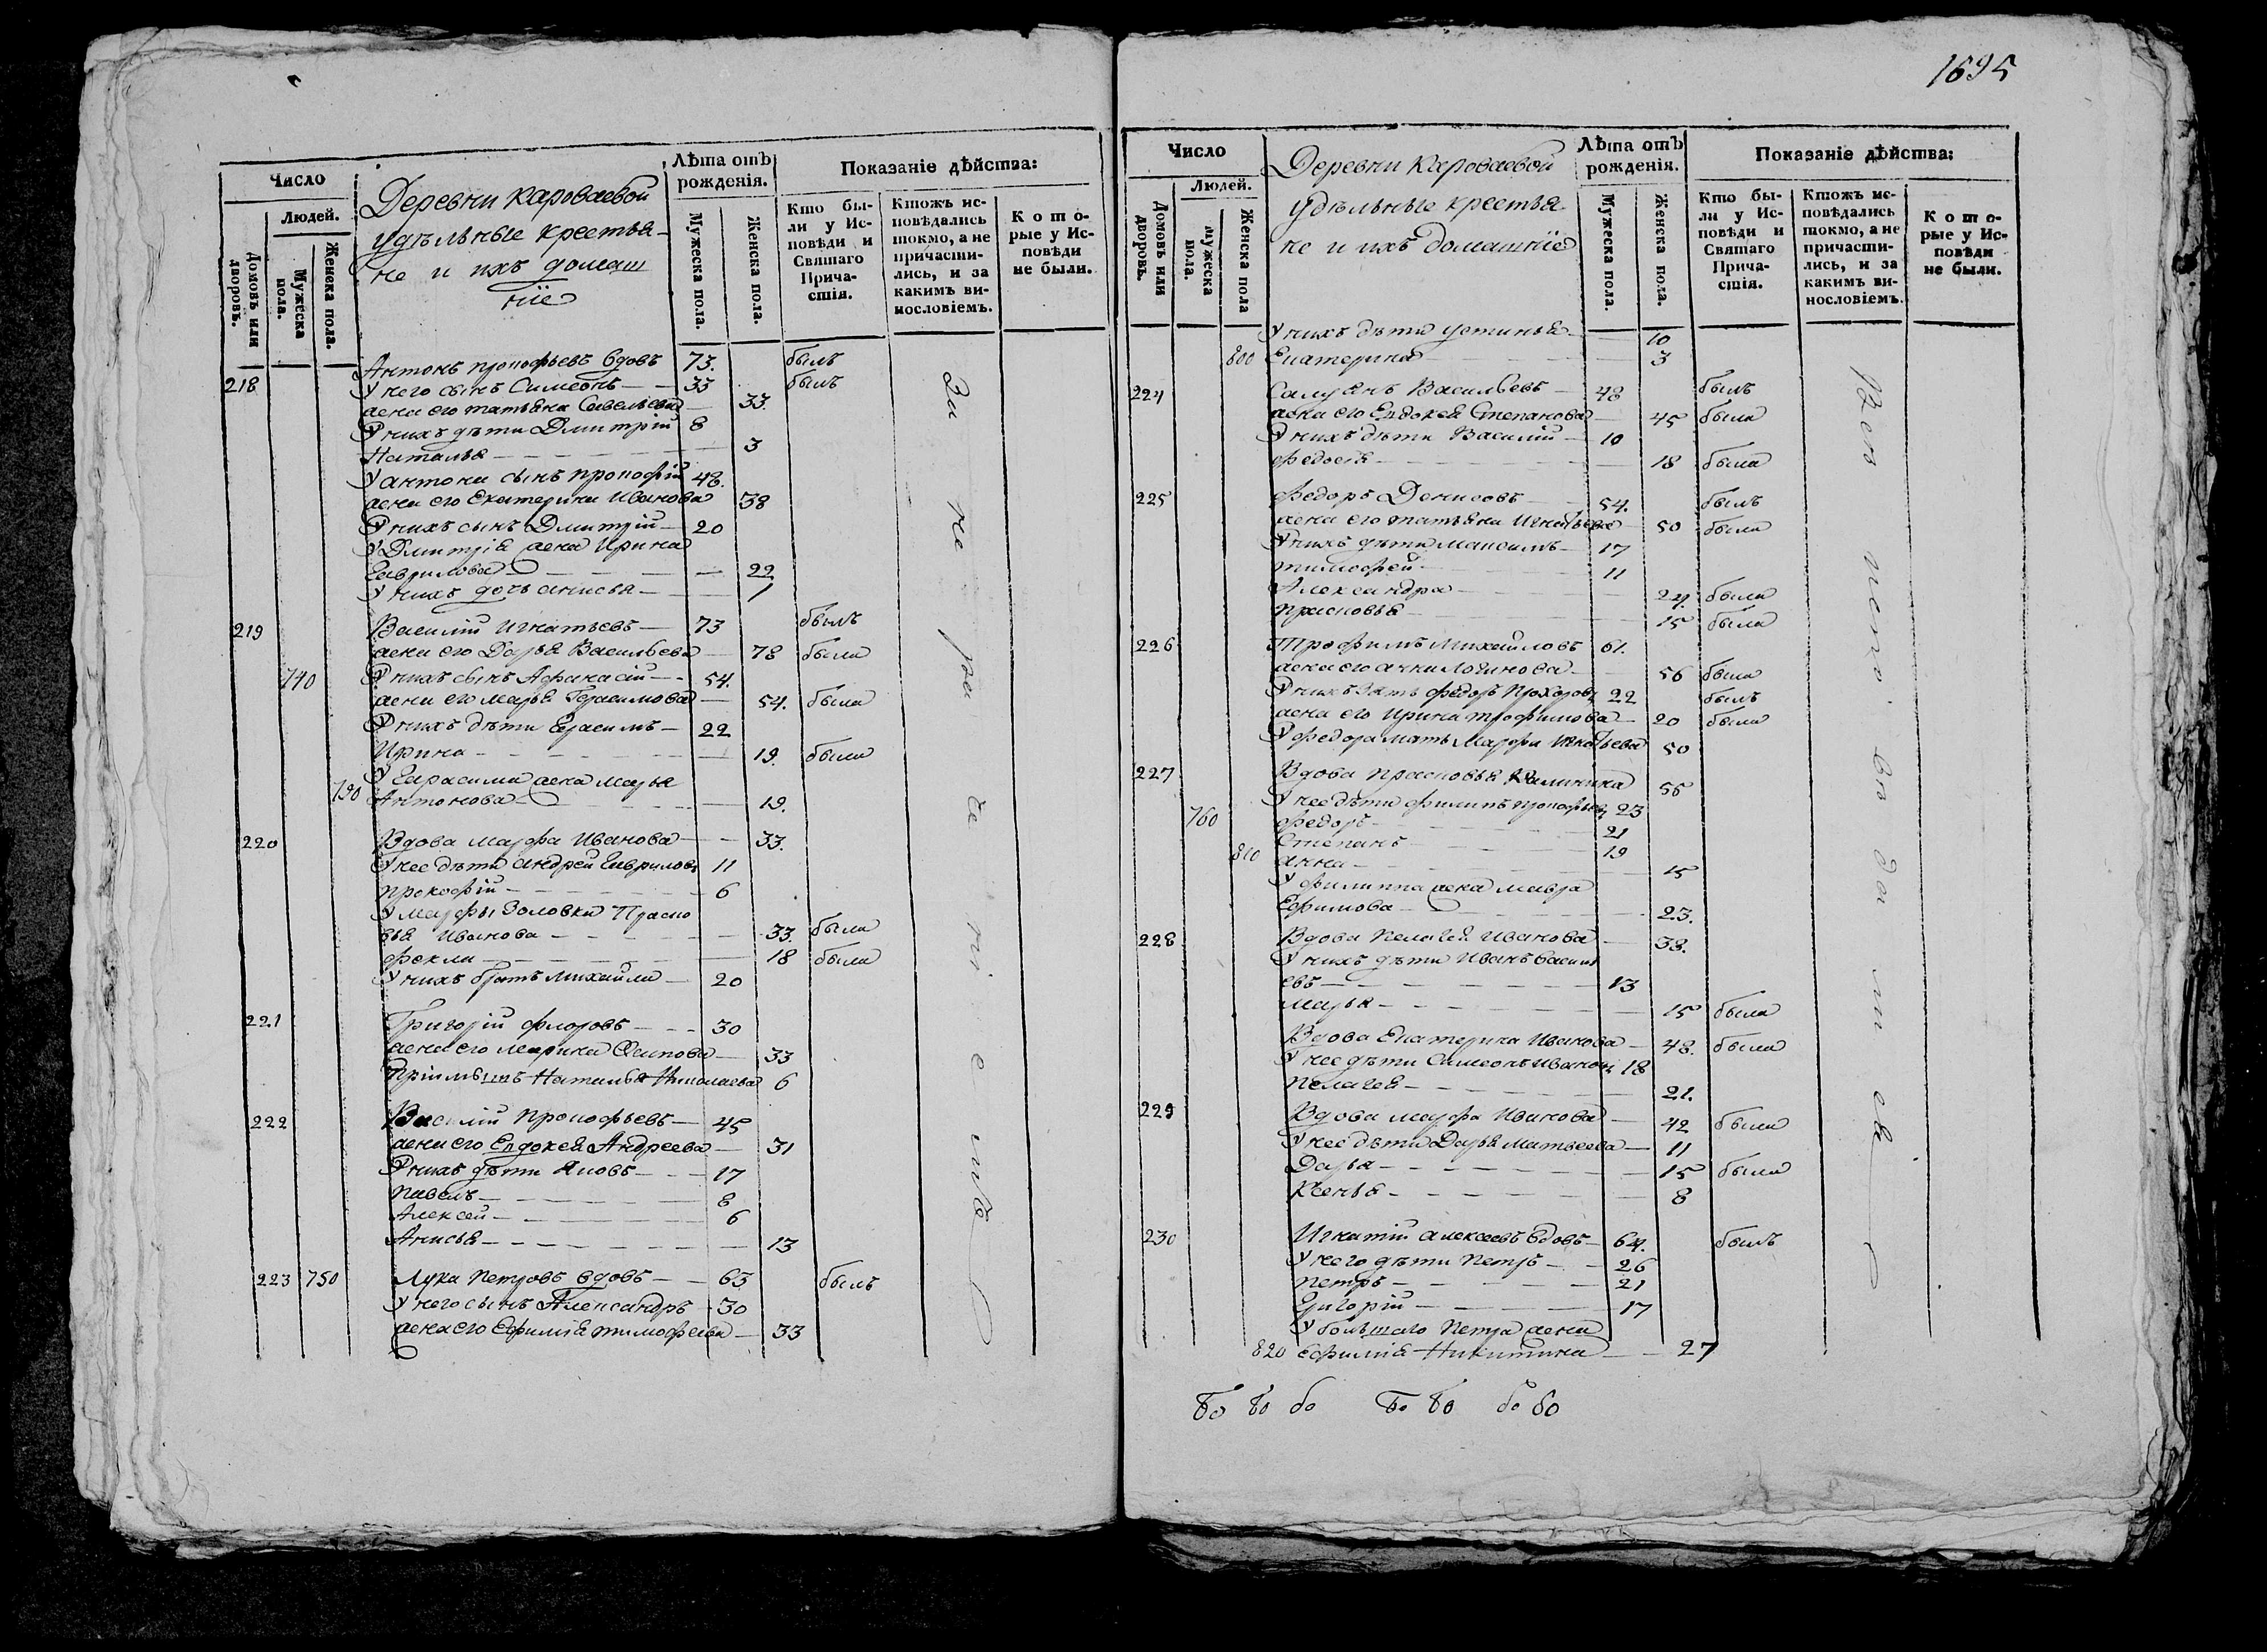 1695
Число
Людей.
Домовъ или дворовъ.
Мужеска пола.
Женска пола.
Деревни Кароваевой
удѣльные крестья-
не и ихъ домаш
ніе
Лѣта отъ рожденія.
Мужеска пола.
Женска пола.
Показаніе дѣйства:
Кто бы-
ли у Ис-
повѣди и
Святаго
Прича-
стія.
Ктожъ ис-
повѣдались
токмо, а не
причасти-
лись, и за
какимъ ви-
нословіемъ.
Кото-
рые у Ис-
повѣди
не были.
Антонъ Прокофьевъ вдовъ 73. былъ
218 У него сынъ Симеонъ 33 былъ
жена его Татьяна Савельева 33.
У нихъ дѣти Дмитрій 8
Наталья 3
У Антона сынъ Прокофій 48.
жена его Екатерина Иванова 38
У нихъ сынъ Дмитрій 20
У Дмитрія жена Ирина
Гаврилова 22
У нихъ дочь Анисья 1
219 Василій Игнатьевъ 73 былъ
жена его Дарья Васильева 78 была
740 У нихъ сынъ Афанасій 54.
жена его Марья Герасимова 54. была
У нихъ дѣти Ерасимъ 22
Ирина 19. была
У Гарасима жена Марья
790 Антонова 19.
220 Вдова Марфа Иванова 33.
У нее дѣти Андрей Гавриловъ 11
Прокофій 6
У Марфы золовки Праско
вья Иванова 33. была
Фекла 18 была
У нихъ братъ Михаила 20
221 Григорій Флоровъ 30
жена его Марина Осипова 33
Пріимышъ Наталья Николаева 6
222 Василій Прокофьевъ 45
жена его Евдокея Андреева 31
У нихъ дѣти Яковъ 17
Павелъ 8
Алексей 6
Анисья 13
223 750 Лука Петровъ вдовъ 63 былъ
У него сынъ Александръ 30
жена его Ефимія Тимофеева 33
За нерачениемъ
Число
Людей.
Домовъ или дворовъ.
Мужеска пола.
Женска пола
Деревни Кароваевой
удѣльные крестья-
не и ихъ домашніе
Лѣта отъ рожденія.
Мужеска пола.
Женска пола.
Показаніе дѣйства:
Кто бы-
ли у Ис-
повѣди и
Святаго
Прича-
стія.
Ктожъ ис-
повѣдались
токмо, а не
причасти-
лись, и за
какимъ ви-
нословіемъ.
Кото-
рые у Ис-
повѣди
не были.
У нихъ дѣти Устинья 10
800 Екатерина 3
224 Васильевъ 48 былъ
жена его Евдокея Степанова 45 была
У нихъ дѣти Василій 10
Федосія 18 была
225 Федоръ Денисовъ 54. былъ
жена его Татьяна Игнатьева 50 была
У нихъ дѣти Максимъ 17
Тимофей 11
Александра 24. была
Прасковья 15 была
226 Трофимъ Михайловъ 61.
жена его Анна Логинова 56 была
У нихъ зять Федоръ Прохоровъ 22 былъ
жена его Ирина Трофимова 20 была
У Федора мать Марфа Игнатьева 50
227 Вдова Прасковья Калинина 56
У нее дѣти Филипъ Прокофьевъ 23
760 Федоръ 21
Степанъ 19
810 Анна 15
У Филиппа жена Мавра
Ефимова 23.
228 Вдова Пелагея Иванова 38.
У нихъ дѣти Иванъ Василь
евъ 13
Марья 15 была
Вдова Екатерина Иванова 48. была
У нее дѣти Симеонъ Ивановъ 18
Пелагея 21.
229 Вдова Марфа Иванова 42 была
У нее дѣти Дарья Матвеева 11
Дарья 15 была
Ксенья 8
230 Игнатій Алексеевъ вдовъ 64. былъ
У него дѣти Петръ 26
Петръ 21
Григорій 17
У большаго Петра жена
820 Ефимія Никитина 27